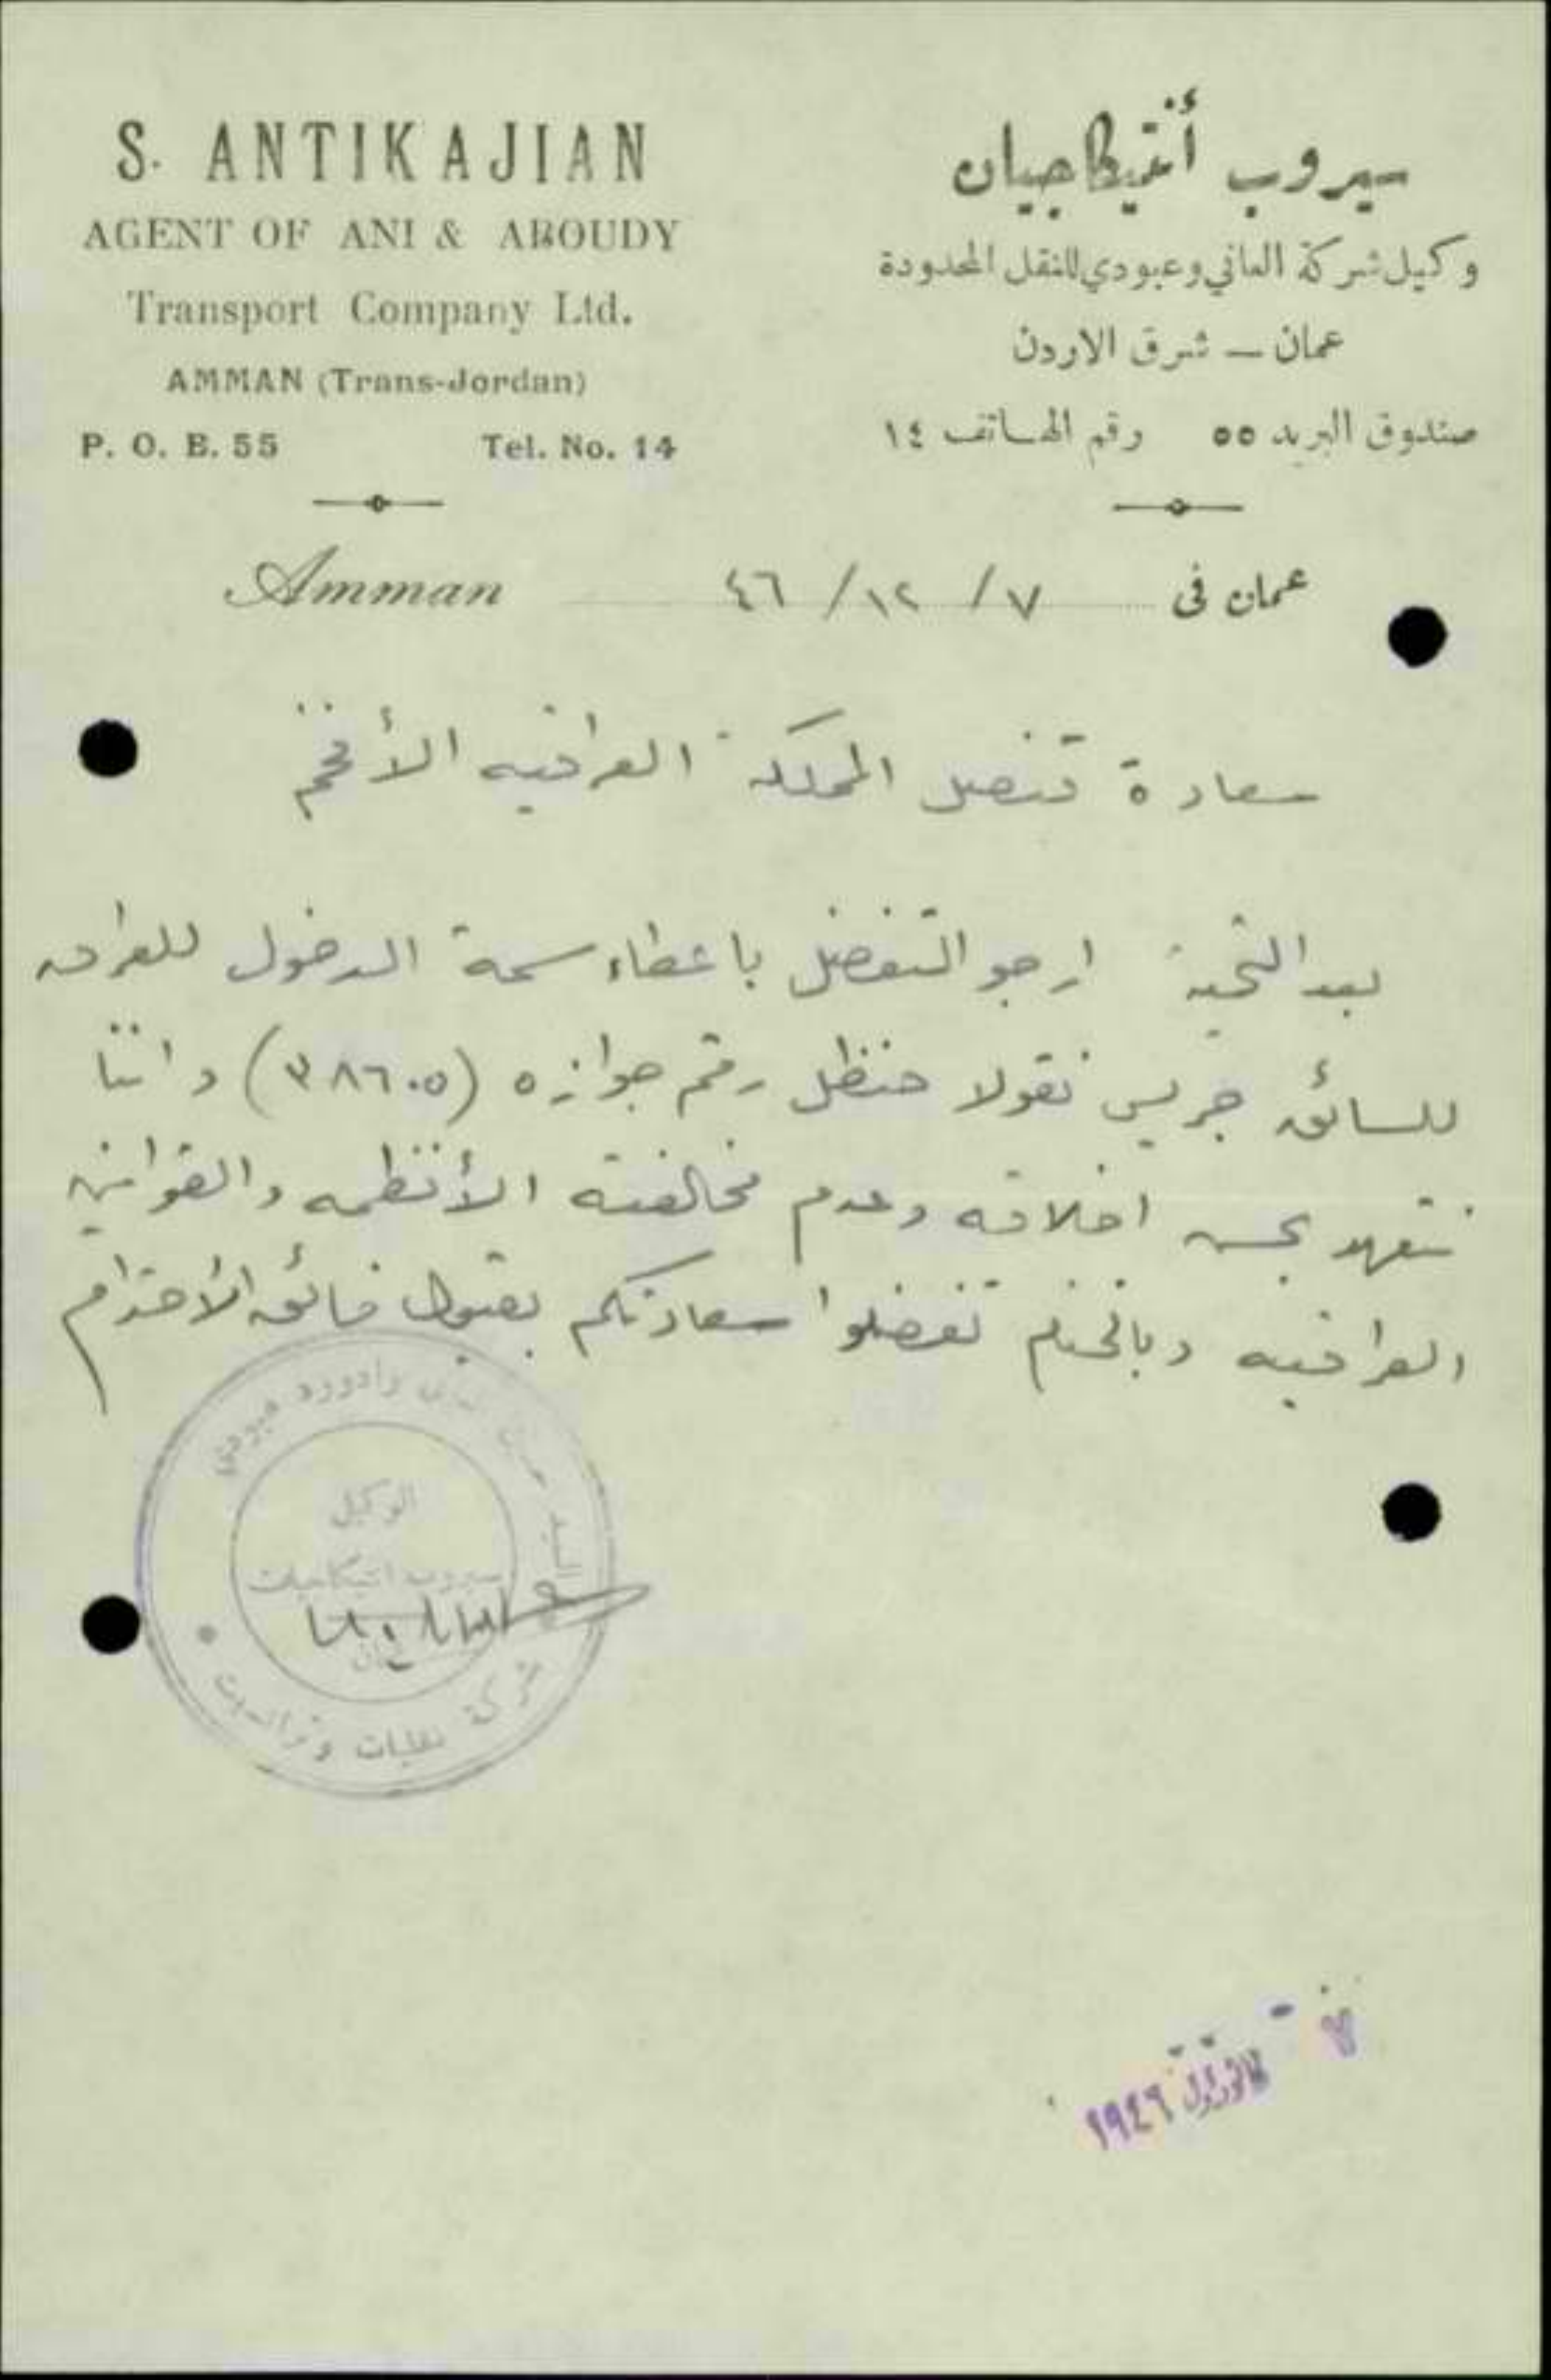 S. ANTIKAJIAN
AGENT OF ANI & ABOUDY
Transport Company Ltd.
AMMAN (Trans-Jordan)
P. O. B. 55 Tel. No. 14
سيروب أنتيكاجيان
وكيل شركة العاني وعبودي للنقل المحدودة
عمان — شرق الاردن
صندوق البريد ٥٥ رقم الهاتف ١٤
Amman عمان في ٧ / ١٢ / ٤٦
سعادة قنصل المملكة العراقيه الأفخم
بعد التحية ارجو التفضل باعطاء سمة الدخول للعراق
للسائق جريس نقولا حنظل رقم جوازه (٣٨٦٠٥) واننا
نتعهد بحسن اخلاقه وعدم مخالفته الأنظمه والقوانين
العراقيه وبالختام تفضلوا سعادتكم بقبول فائق الأحترام
وادوورد عبودي
الوكيل
سيروب انتيكاجيان
شركة نقليات
كانون اول ١٩٤٦